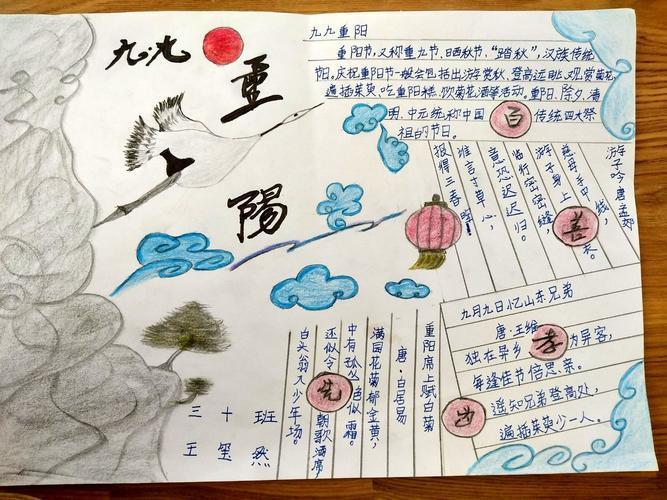 九·九
重
陽
九九重阳
重阳节,又称重九节、晒秋节、“踏秋”,汉族传统
节日。庆祝重阳节一般会包括出游赏秋、登高远眺、观赏菊花
遍插茱萸、吃重阳糕、饮菊花酒等活动。重阳、除夕、清
明、中元统称中国百传统四大祭
祖的节日。
游子吟 唐·孟郊
慈母手中线,
游子身上衣。
临行密密缝
意恐迟迟归。
谁言寸草心,
报得三春晖
善
九月九日忆山东兄弟
唐·王维
独在异乡孝为异客,
每逢佳节倍思亲。
遥知兄弟登高处,
遍插茱萸少一人。
重阳席上赋白菊
唐·白居易
满园花菊郁金黄,
中有孤丛色似霜。
还似今朝歌酒席
白头翁入少年场。
先
三十班
王玺然